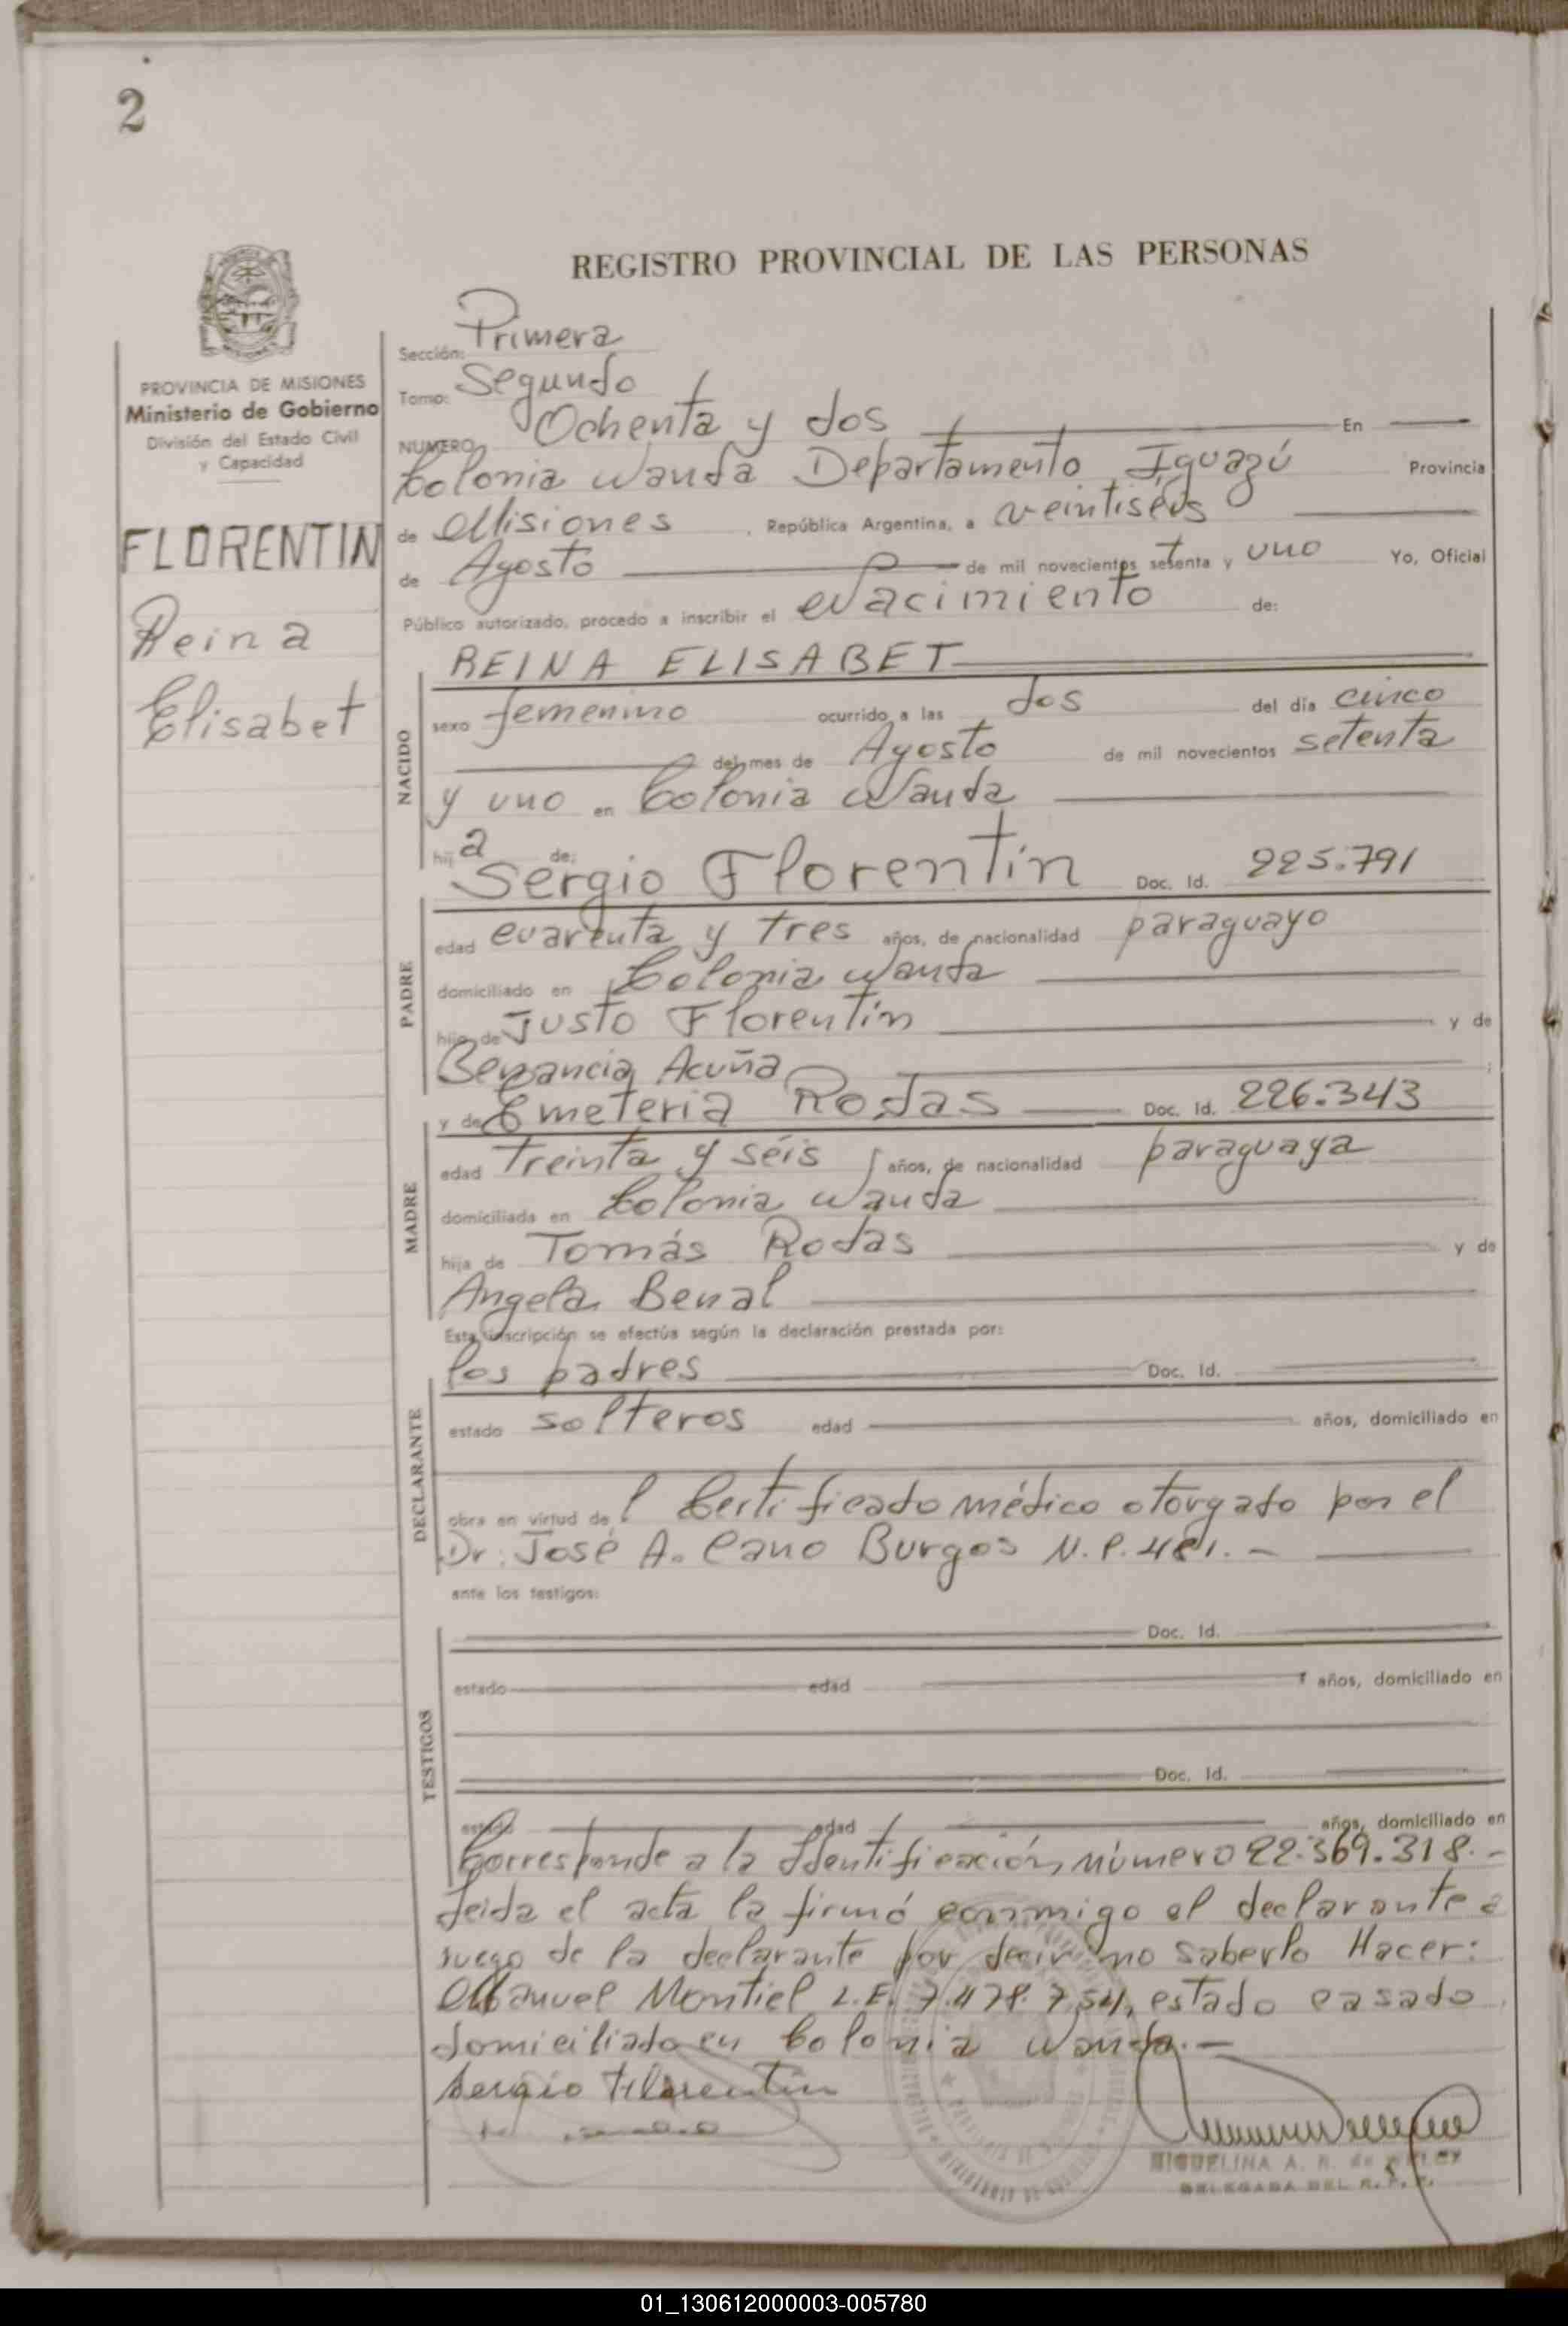 2
REGISTRO PROVINCIAL DE LAS PERSONAS
PROVINCIA DE MISIONES
Ministerio de Gobierno
División del Estado Civil
y Capacidad
FLORENTIN
Reina
Elisabet
Sección: Primera
Tomo: Segundo
NUMERO Ochenta y dos En
Colonia Wanda Departamento Iguazú Provincia
de Misiones, República Argentina, a veintiséis
de Agosto de mil novecientos setenta y uno Yo, Oficial
Público autorizado, procedo a inscribir el Nacimiento de:
NACIDO
REINA ELISABET
sexo femenino ocurrido a las dos del día cinco
del mes de Agosto de mil novecientos setenta
y uno en Colonia Wanda
hija de:
PADRE
Sergio Florentín Doc. Id. 225.791
edad cuarenta y tres años, de nacionalidad paraguayo
domiciliado en Colonia Wanda
hijo de Justo Florentín y de
Benancia Acuña;
MADRE
y de Emeteria Rodas Doc. Id. 226.343
edad treinta y séis años, de nacionalidad paraguaya
domiciliada en Colonia Wanda
hija de Tomás Rodas y de
Angela Benal
Esta inscripción se efectúa según la declaración prestada por:
DECLARANTE
los padres Doc. Id.
estado solteros edad años, domiciliado en
obra en virtud del Certificado médico otorgado por el
Dr. José A. Cano Burgos N.P. 481.-
ante los testigos:
TESTIGOS
Doc. Id.
estado edad años, domiciliado en
Doc. Id.
estado edad años, domiciliado en
Corresponde a la Identificación número 22.369.318.-
Leida el acta la firmó conmigo el declarante a
ruego de la declarante por decir no saberlo Hacer:
Manuel Montiel L.E. 7.478.754, estado casado
domiciliado en Colonia Wanda.-
Sergio Florentin
MIGUELINA A. R. de
DELEGADA DEL R. P. P.
01_130612000003-005780